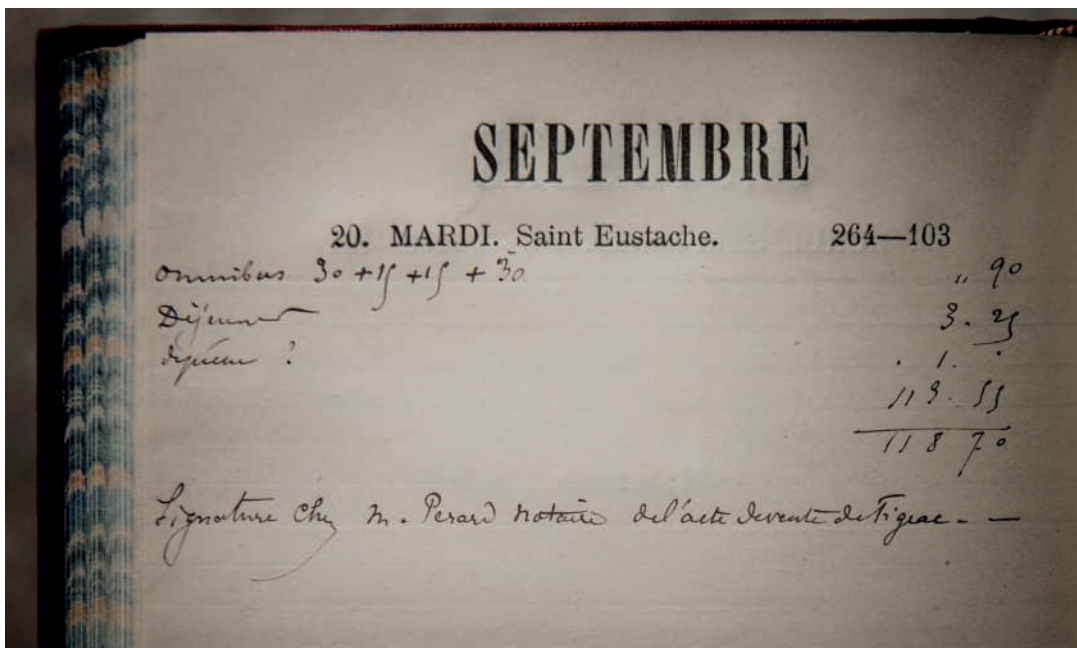 SEPTEMBRE
20. MARDI. Saint Eustache. 264—103
Omnibus 30 + 15 + 15 + 30 " 90
Déjeuner 3. 25
? . 1. .
113. 55
118 70
Signature chez M. Perard notaire de l'acte de vente de Figeac - —